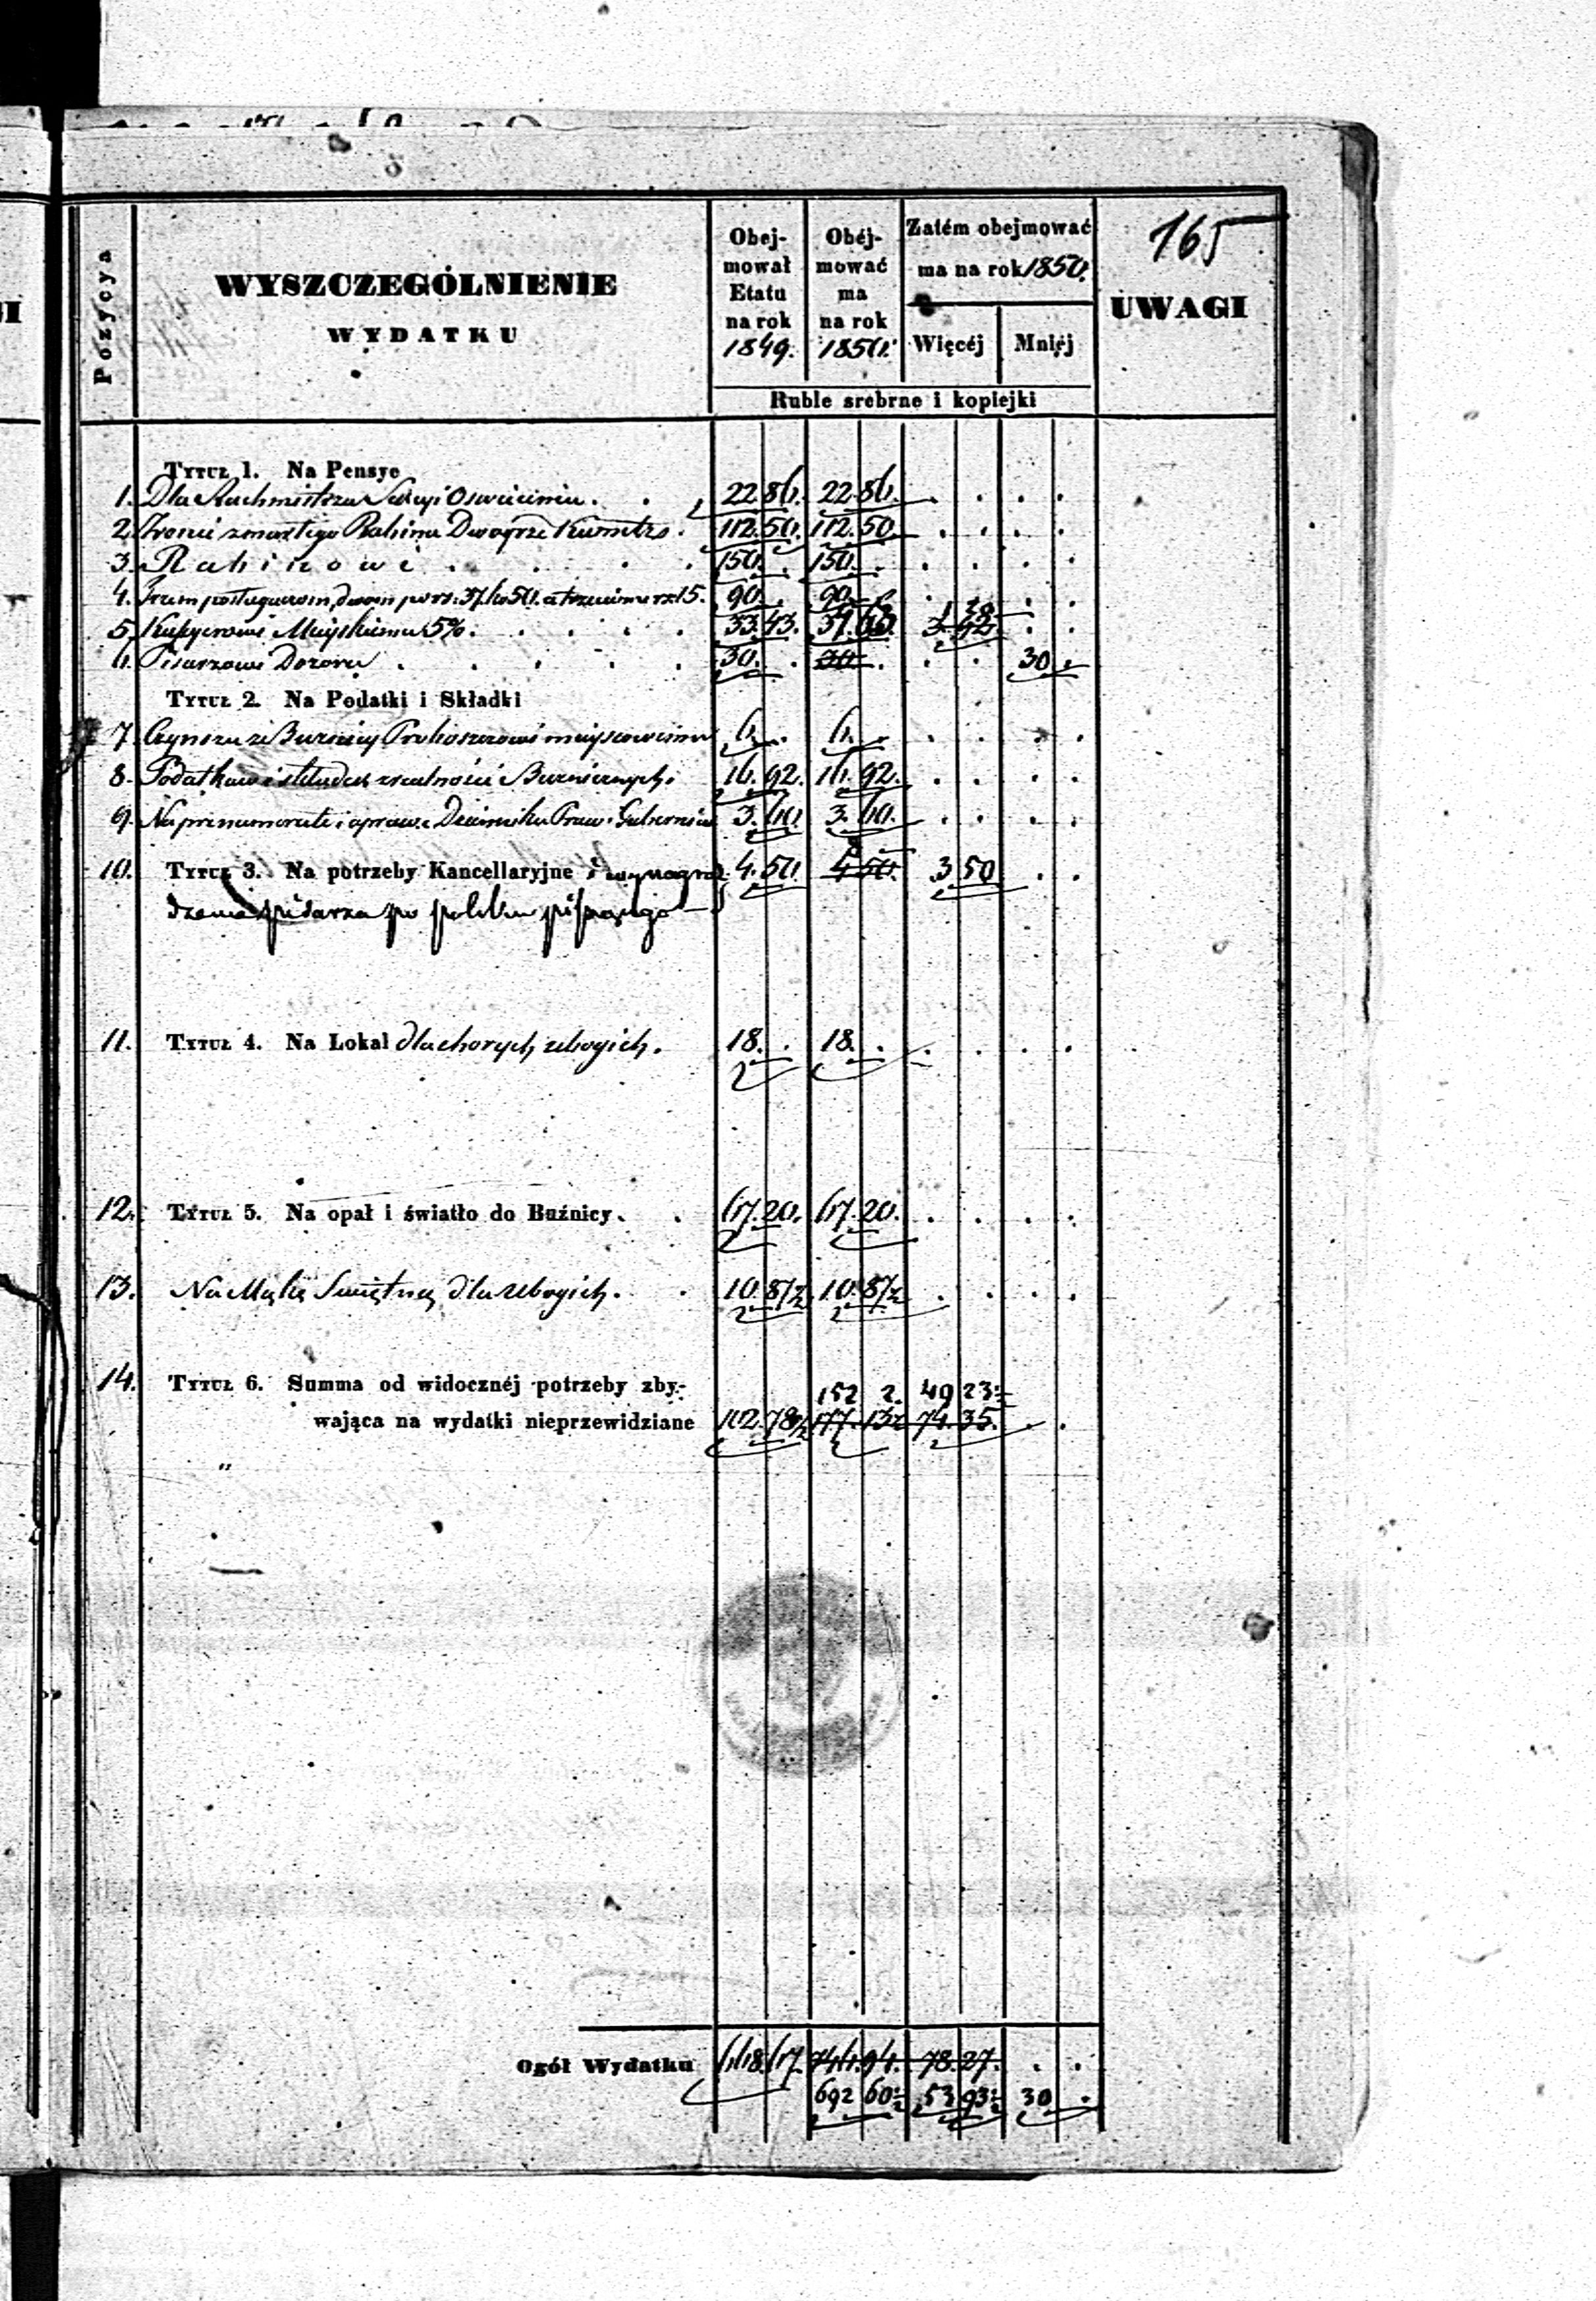 165
Pozycya
WYSZCZEGÓLNIENIE
WYDATKU
Obej-
mował
Etatu
na rok
1849.
Obéj-
mować
ma
na rok
1850.
Zatém obejmować
ma na rok 1850.
Więcéj
Mniéj
UWAGI
Ruble srebrne i kopiejki
Tytuł 1. Na Pensye
1. Dla Rachmistrza Sekcyi Oswiecenia . . 22.86. 22.86. . . . .
2. Żonie zmarłego Rabina Dwojrze . 112.50. 112.50. . . . .
3. Rabinowi . . . . . 150. . 150. . . . . .
4. Trzem posługaczom, dwom po rs. 37. ko 50. a trzeciemu rs 15. 90. . 90. . . . . .
5. Kassyerowi Mieyskiemu 5%. . . . . . 33.43. 1 38
6. Pisarzowi Dozoru . . . . . 30. . 30. . . . 30. .
Tytuł 2. Na Podatki i Składki
7. Czynszu z Buznicy Proboszczowi mieyscowemu 6. . 6. . . . . .
8. Podatków i składek z realności Buzniczych. 16.92. 16.92. . . . .
9. Na prenumeratę i oprawę Dziennika Praw i Gubernial 3.60. 3.60. . . . .
10. Tytuł 3. Na potrzeby Kancellaryjne i wynagro 4.50. 8 4 50. 3 50 . .
dzenie pisarza po polsku piszącego
11. Tytuł 4. Na Lokal dla chorych ubogich. 18. . 18. . . . . .
12. Tytuł 5. Na opał i światło do Buźnicy. . 67.20. 67.20. . . . .
13. Na Mąkę Swiętną dla ubogich. . 10.87½ 10.87½ . . . .
14. Tytuł 6. Summa od widocznéj potrzeby zby-
152 2. 49 23½
wająca na wydatki nieprzewidziane 102.78½ 177.13½ 74.35. . .
"
Ogół Wydatku 668.67. 746.94. 78.27. . .
692 60½ 53 93½ 30 .